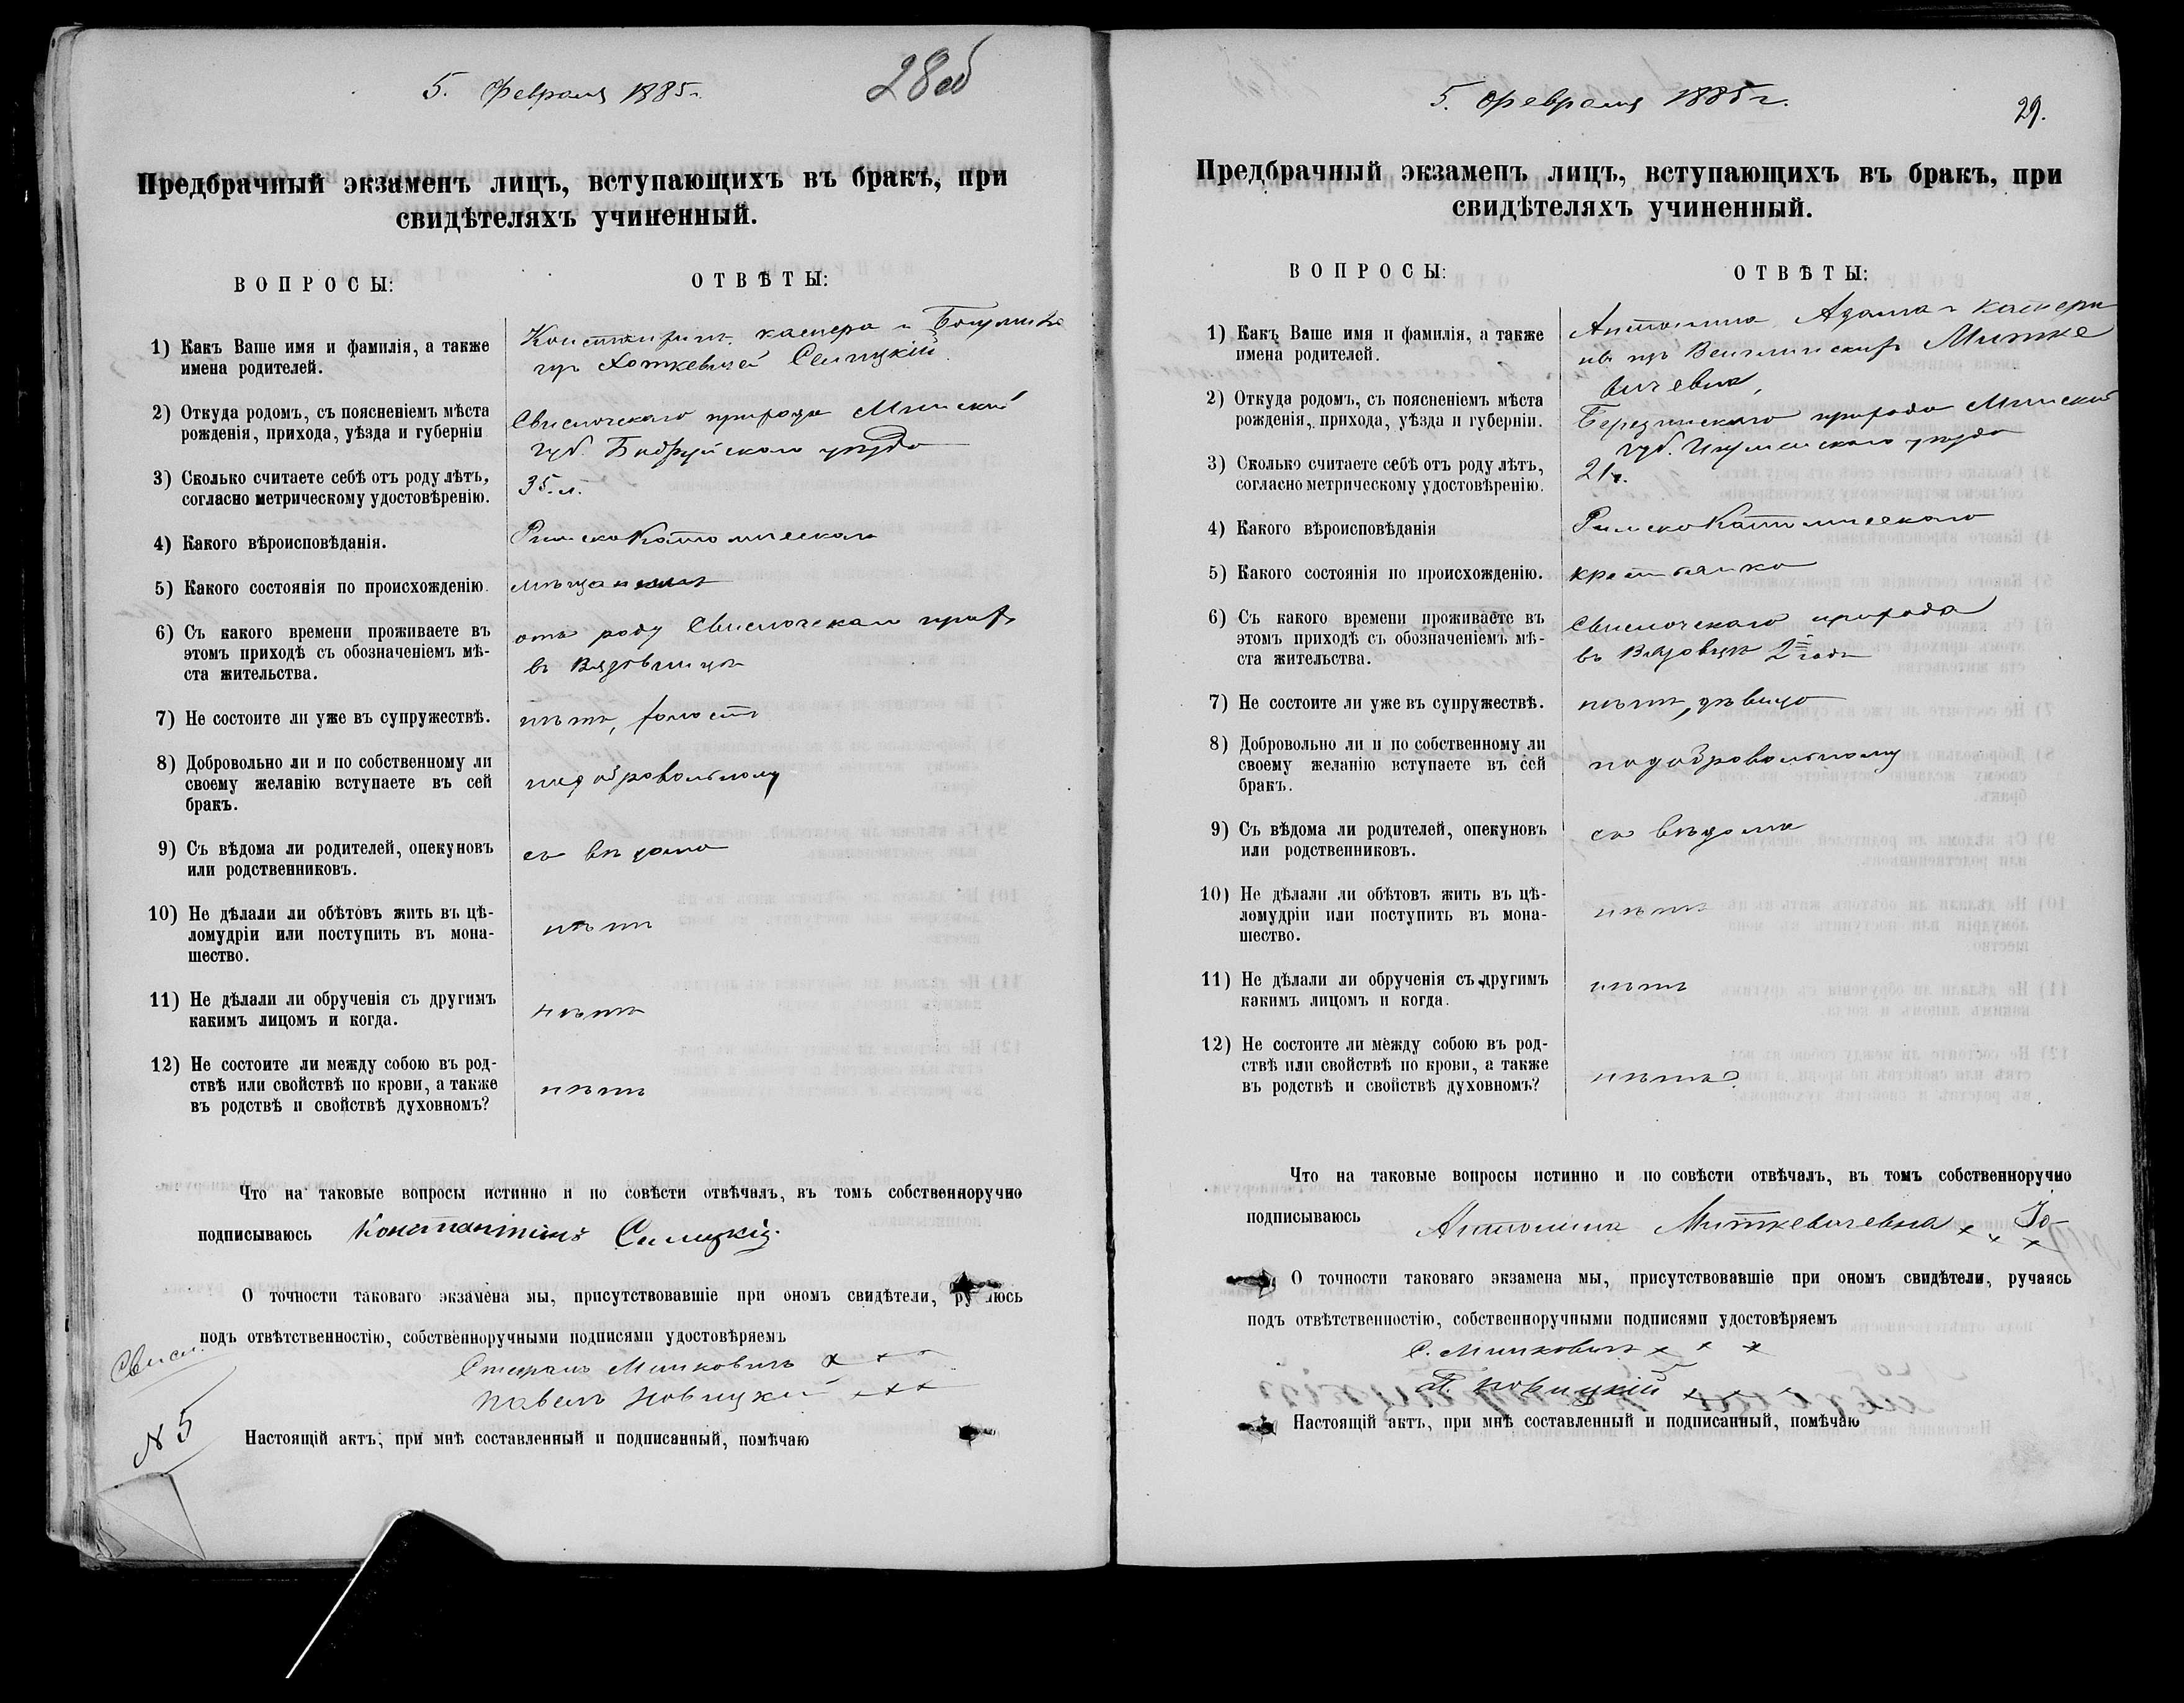 5. Февраля 1885 г.
28 об
Предбрачный экзаменъ лицъ, вступающихъ въ бракъ, при
свидѣтеляхъ учиненный.
ВОПРОСЫ:
ОТВѢТЫ:
1) Какъ Ваше имя и фамилія, а также
имена родителей.
Каспера и
Хоткевичей Селицкій
2) Откуда родомъ, съ поясненіемъ мѣста
рожденія, прихода, уѣзда и губерніи
Свислочскаго прихода Минской
губ. Бобруйскаго уѣзда
3) Сколько считаете себѣ отъ роду лѣтъ,
согласно метрическому удостовѣренію.
35 л.
4) Какого вѣроисповѣданія.
Римско Католическаго
5) Какого состоянія по происхожденію.
мѣщанинъ
6) Съ какого времени проживаете въ
этомъ приходѣ съ обозначеніемъ мѣ-
ста жительства.
отъ роду Свислочскаго прих.
въ
7) Не состоите ли уже въ супружествѣ.
нѣтъ, холостъ
8) Добровольно ли и по собственному ли
своему желанію вступаете въ сей
бракъ.
по добровольному
9) Съ вѣдома ли родителей, опекуновъ
или родственниковъ.
съ вѣдома
10) Не дѣлали ли обѣтовъ жить въ цѣ-
ломудріи или поступить въ мона-
шество.
нѣтъ
11) Не дѣлали ли обрученія съ другимъ
какимъ лицомъ и когда.
нѣтъ
12) Не состоите ли между собою въ род-
ствѣ или свойствѣ по крови, а также
въ родствѣ и свойствѣ духовномъ?
нѣтъ
Что на таковые вопросы истинно и по совѣсти отвѣчалъ, въ томъ собственноручно
подписываюсь Константинъ Селицкій.
О точности таковаго экзамена мы, присутствовавшіе при ономъ свидѣтели, ру аюсь
подъ отвѣтственностію, собственноручными подписями удостовѣряемъ
Стефанъ Минковичъ x x x
Павелъ Новицкій x x x
Свисл.
N 5
Настоящій актъ, при мнѣ составленный и подписанный, помѣчаю
5. Февраля 1885 г.
29.
Предбрачный экзаменъ лицъ, вступающихъ въ бракъ, при
свидѣтеляхъ учиненный.
ВОПРОСЫ:
ОТВѢТЫ:
1) Какъ Ваше имя и фамилія, а также
имена родителей.
Антонина Адама и Катери
ны изъ Митке
вичевна,
2) Откуда родомъ, съ поясненіемъ мѣста
рожденія, прихода, уѣзда и губерніи.
Березинскаго прихода Минской
губ. Игуменскаго уѣзда
3) Сколько считаете себѣ отъ роду лѣтъ,
согласно метрическому удостовѣренію.
21 г.
4) Какого вѣроисповѣданія
Римско Католическаго
5) Какого состоянія по происхожденію.
крестьянка
6) Съ какого времени проживаете въ
этомъ приходѣ съ обозначеніемъ мѣ-
ста жительства.
Свислочскаго прихода
въ 2 года
7) Не состоите ли уже въ супружествѣ.
нѣтъ, дѣвица
8) Добровольно ли и по собственному ли
своему желанію вступаете въ сей
бракъ.
по добровольному
9) Съ вѣдома ли родителей, опекуновъ
или родственниковъ.
съ вѣдома
10) Не дѣлали ли обѣтовъ жить въ цѣ-
ломудріи или поступить въ мона-
шество.
нѣтъ
11) Не дѣлали ли обрученія съ другимъ
какимъ лицомъ и когда.
нѣтъ
12) Не состоите ли между собою въ род-
ствѣ или свойствѣ по крови, а также
въ родствѣ и свойствѣ духовномъ?
нѣтъ
Что на таковые вопросы истинно и по совѣсти отвѣчалъ, въ томъ собственноручно
подписываюсь Антонина Миткевичевна x x x
О точности таковаго экзамена мы, присутствовавшіе при ономъ свидѣтели, ручаясь
подъ отвѣтственностію, собственноручными подписями удостовѣряемъ
С. Минковичъ x x x
П. Новицкій x x x
Настоящій актъ, при мнѣ составленный и подписанный, помѣчаю